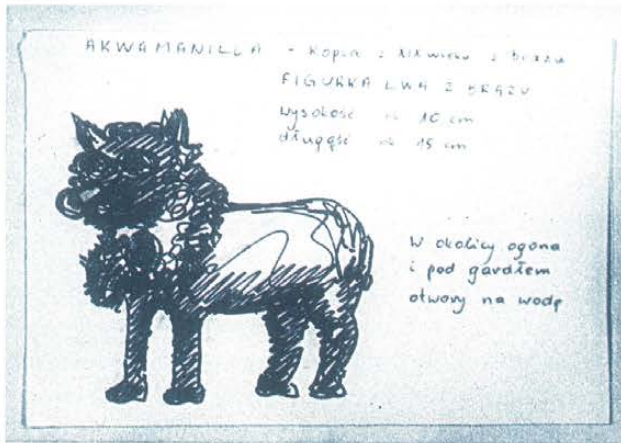 AKWAMANILLA - kopia z XIX wieku z brązu
FIGURKA LWA Z BRĄZU
wysokość ok 10 cm
długość ok 15 cm
W okolicy ogona
i pod gardłem
otwory na wodę